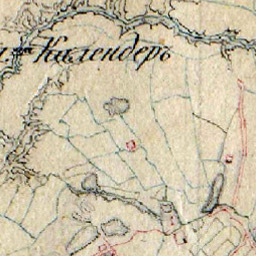 Календеръ